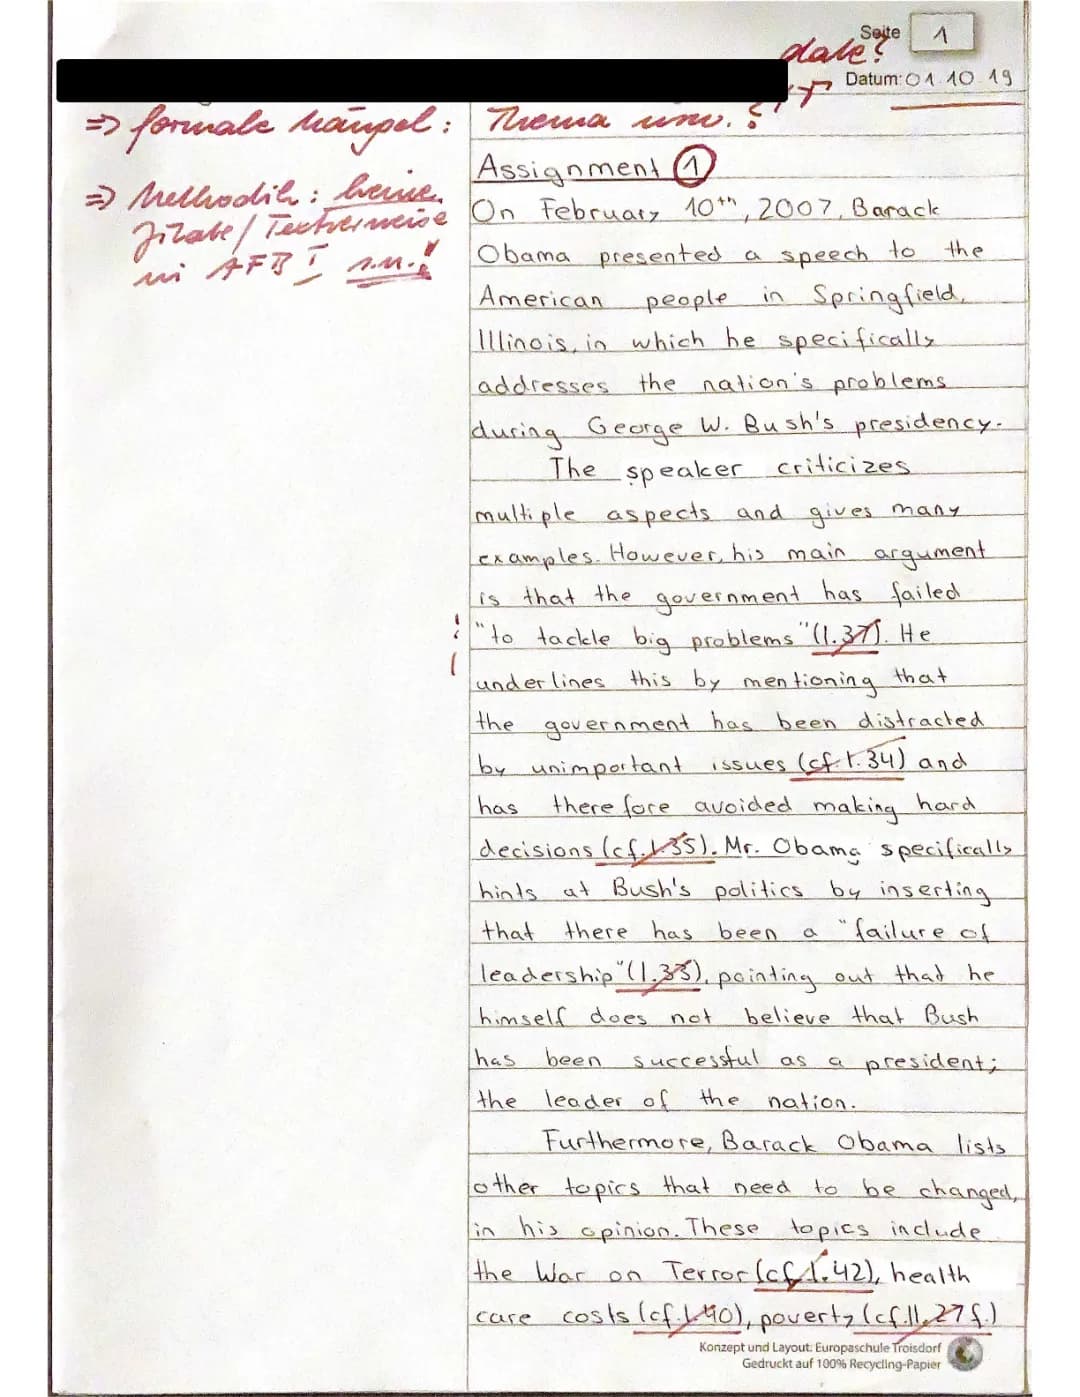 Seite 1
date?
Datum: 01.10.19
=> formale Mängel: Thema usw.?
Assignment 1
=> Methodik: keine
Zitate/Textverweise
in AFB I s.u.!
On February 10th, 2007, Barack
Obama presented a speech to the
American people in Springfield,
Illinois, in which he specifically
addresses the nation's problems
during George W. Bush's presidency.
The speaker criticizes
multiple aspects and gives many
examples. However, his main argument
is that the government has failed
"to tackle big problems" (l.37). He
underlines this by mentioning that
the government has been distracted
by unimportant issues (cf. l. 34) and
has therefore avoided making hard
decisions (cf. l.35). Mr. Obama specifically
hints at Bush's politics by inserting
that there has been a "failure of
leadership" (l.33), pointing out that he
himself does not believe that Bush
has been successful as a president;
the leader of the nation.
Furthermore, Barack Obama lists
other topics that need to be changed,
in his opinion. These topics include
the War on Terror (cf. l. 42), health
care costs (cf. l.40), poverty (cf. ll. 27 f.)
Konzept und Layout: Europaschule Troisdorf
Gedruckt auf 100% Recycling-Papier